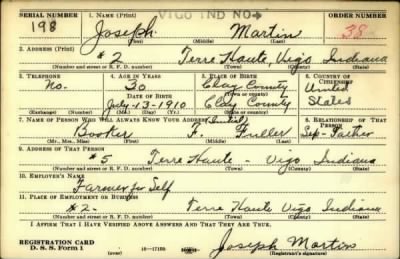 SERIAL NUMBER 1. NAME (Print) VIGO IND NO→ ORDER NUMBER
198 Joseph Martin 38
(First) (Middle) (Last)
2. ADDRESS (Print)
#2 Terre Haute, Vigo Indiana
(Number and street or R. F. D. number) (Town) (County) (State)
3. TELEPHONE 4. AGE IN YEARS 5. PLACE OF BIRTH 6. COUNTRY OF CITIZENSHIP
No. 30 Clay County United
DATE OF BIRTH (Town or county)
July-13-1910 Clay County States
(Exchange) (Number) (Mo.) (Day) (Yr.) (State or country)
7. NAME OF PERSON WHO WILL ALWAYS KNOW YOUR ADDRESS 8. RELATIONSHIP OF THAT PERSON
Booker F. Fuller Step-Father
(Mr., Mrs., Miss) (First) (Middle) (Last)
9. ADDRESS OF THAT PERSON
#5 Terre Haute - Vigo Indiana
(Number and street or R. F. D. number) (Town) (County) (State)
10. EMPLOYER'S NAME
Farmer for Self
11. PLACE OF EMPLOYMENT OR BUSINESS
#2- Terre Haute Vigo Indiana
(Number and street or R. F. D. number) (Town) (County) (State)
I AFFIRM THAT I HAVE VERIFIED ABOVE ANSWERS AND THAT THEY ARE TRUE.
REGISTRATION CARD
D. S. S. Form 1 (over) 16—17105 Joseph Martin
(Registrant's signature)